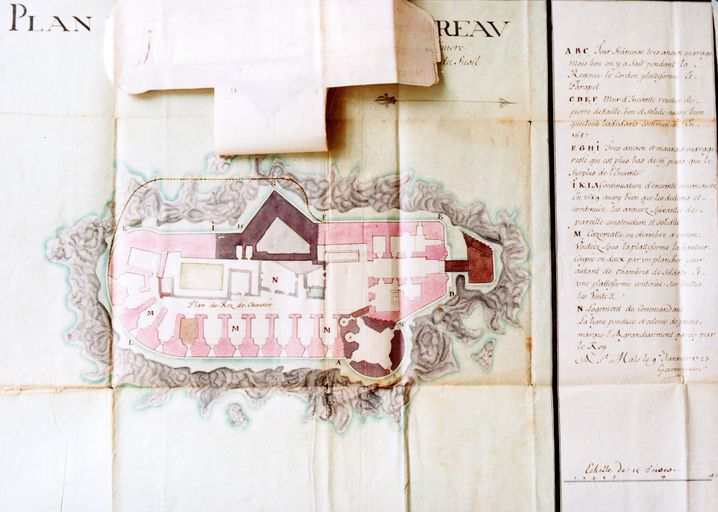 PLAN
REAU
du Fusil
A B C Tour Françoise tres ancien ouvrage
mais bon on y a fait pendant la
Regence le Cordon plateforme et
Parapel
C D E F Mur d'Enceinte revetue de
pierre de taille bon et solide aussy bien
que tout les dedans commencée En
F G H I Tres ancien et mauvais ouvrage
reste qui est plus bas de 16 pieds que le
Surplus de l'enceinte
I K L A Continuation d'enceinte commencée
En 1689 aussy bien que les dedans et
continuée les années suivantes de
pareille construction et solidité
M Cazematte ou chambre a canon
Voutées sous la plateforme la hauteur
Coupée en deux par un plancher pour
autant de chambres de Soldats et
une plateforme continue Sur toutes
les Voutes
N Logement du Commandant
La ligne ponctuée et colorée de jaune
marque l'Agrandissement garée par
le Roy
A St Malo le 9e Janvier
K
I
H
G
F
E
N
D
Plan du Rez de Chaussée
M
M
M
M
L
A
Echelle de 15 Toises